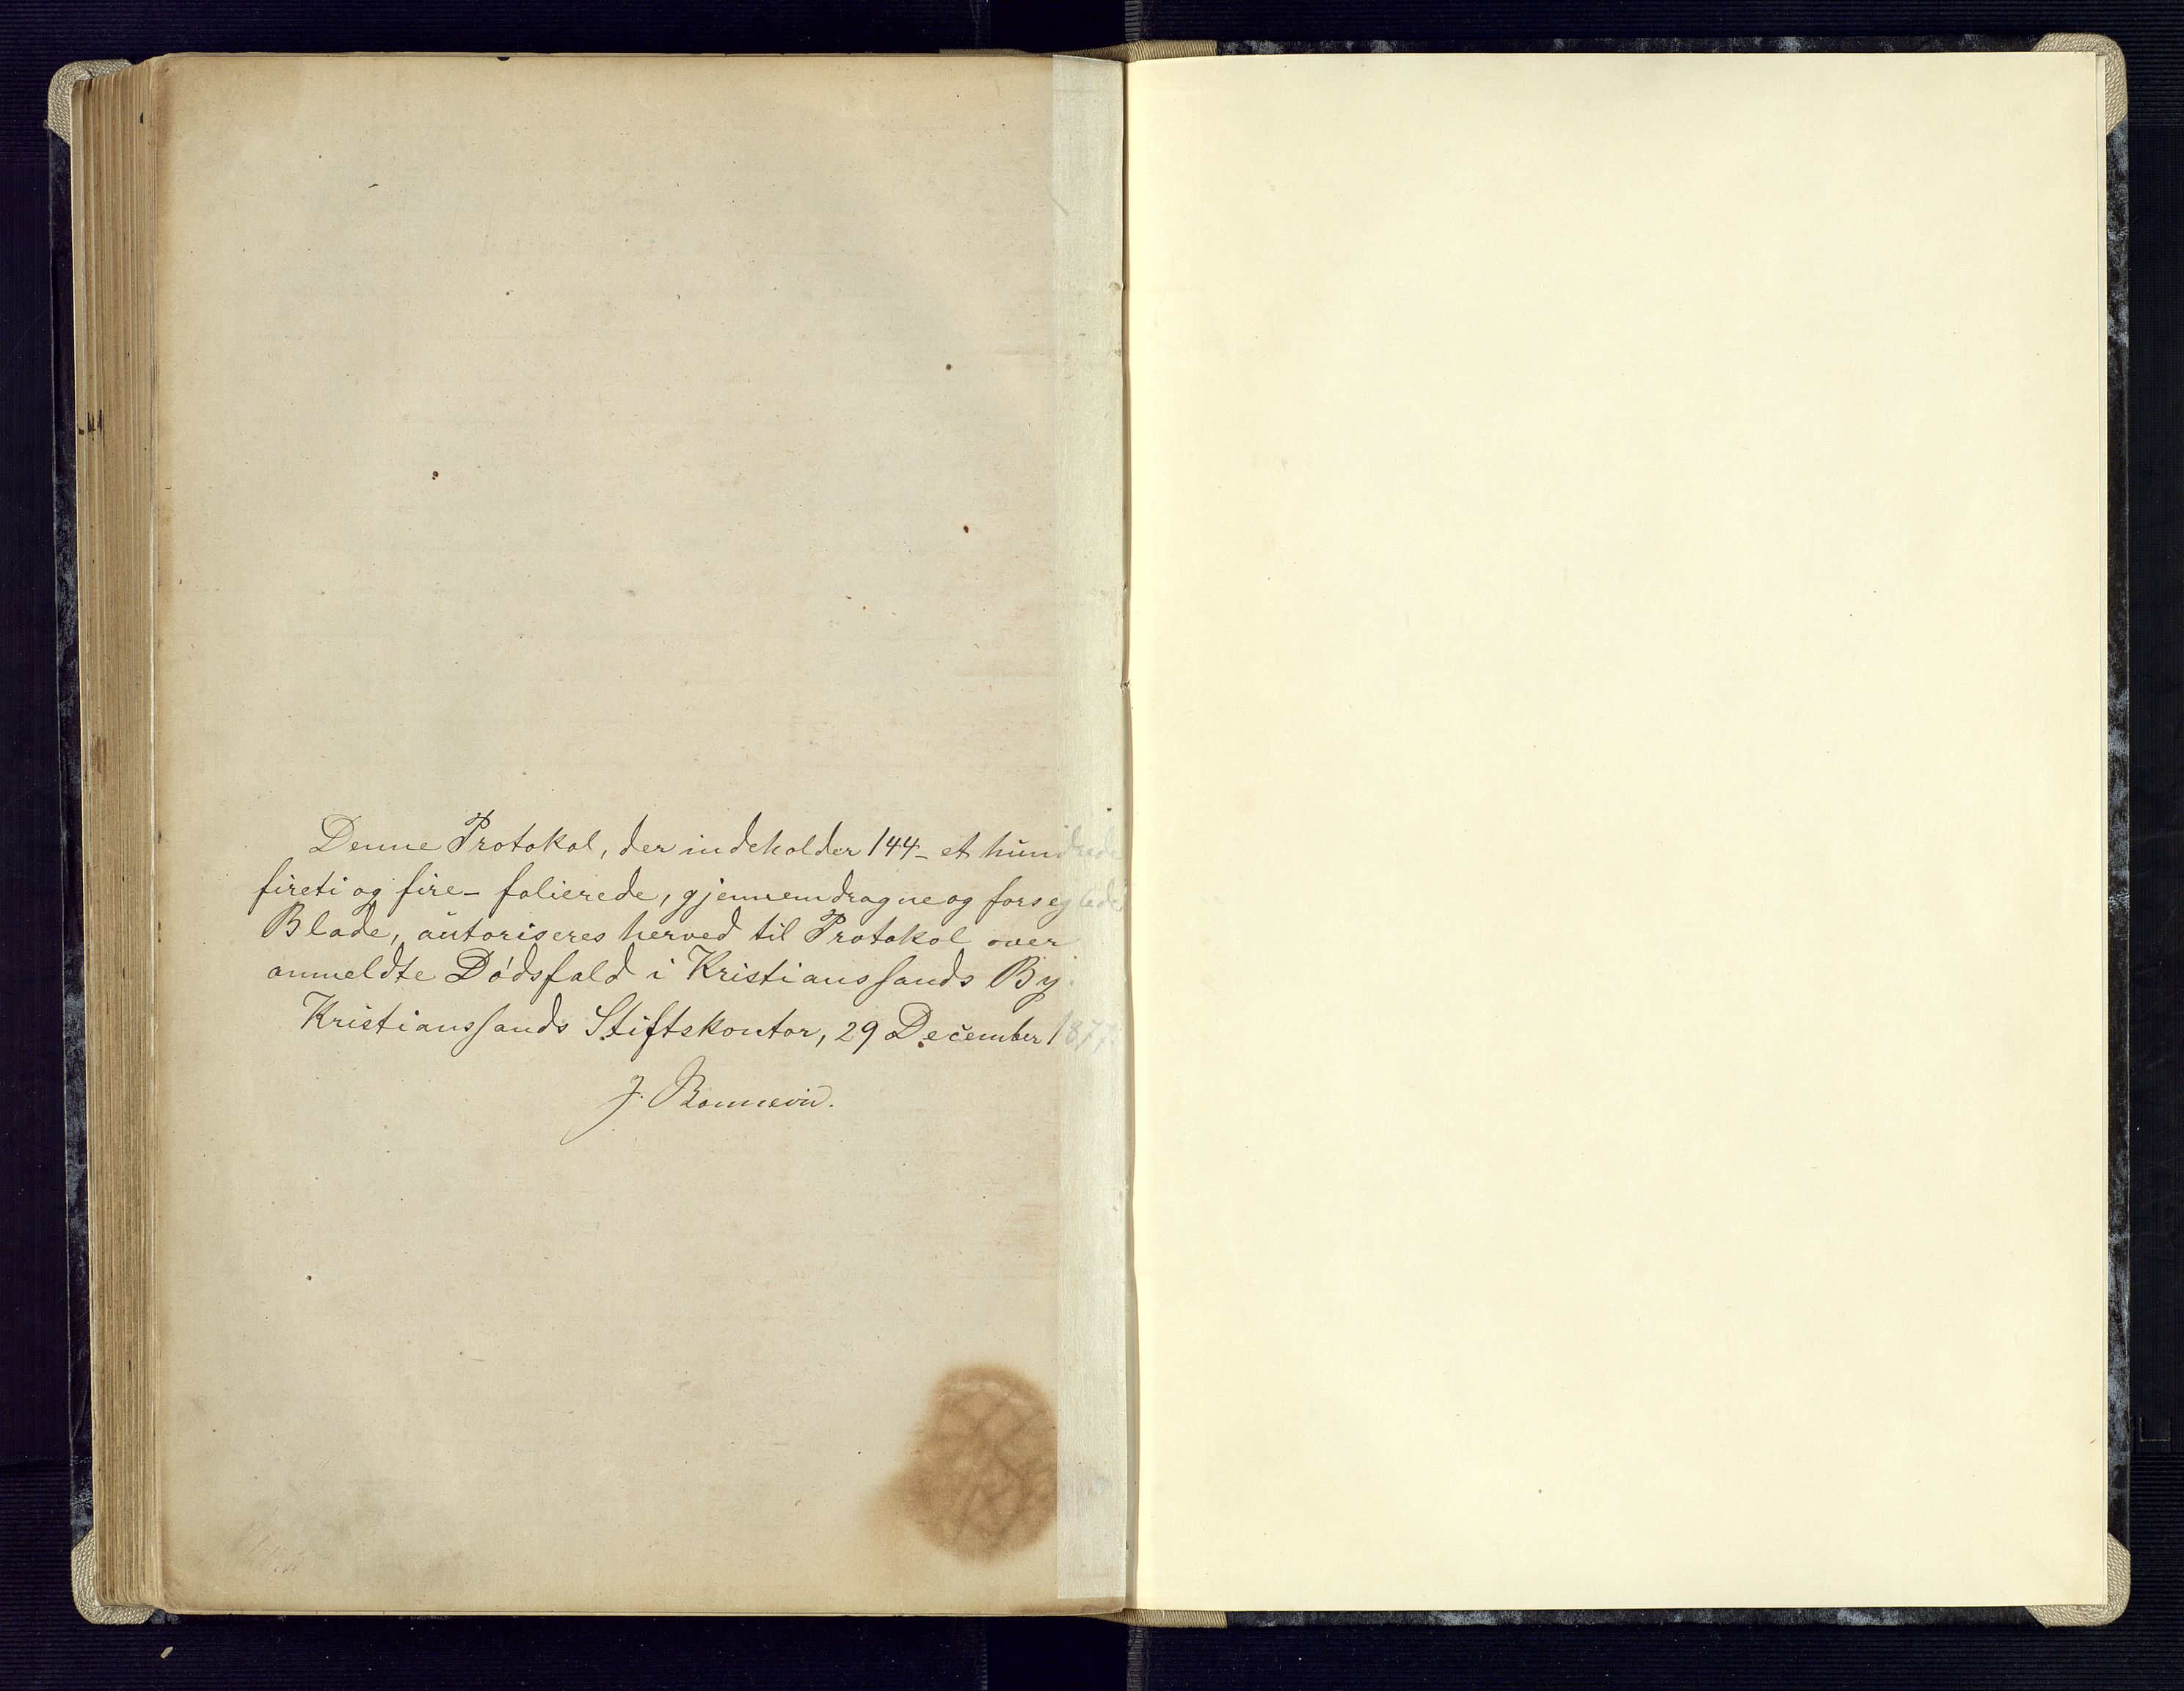 Denne Protokol, der indeholder 144 - et hundrede
fireti og fire - folierede, gjennemdragne og forseglede
Blade, autoriseres herved til Protokol over
anmeldte Dødsfald i Kristianssands By.
Kristianssands Stiftskontor, 29 December 1877.
J. Bonnevie.